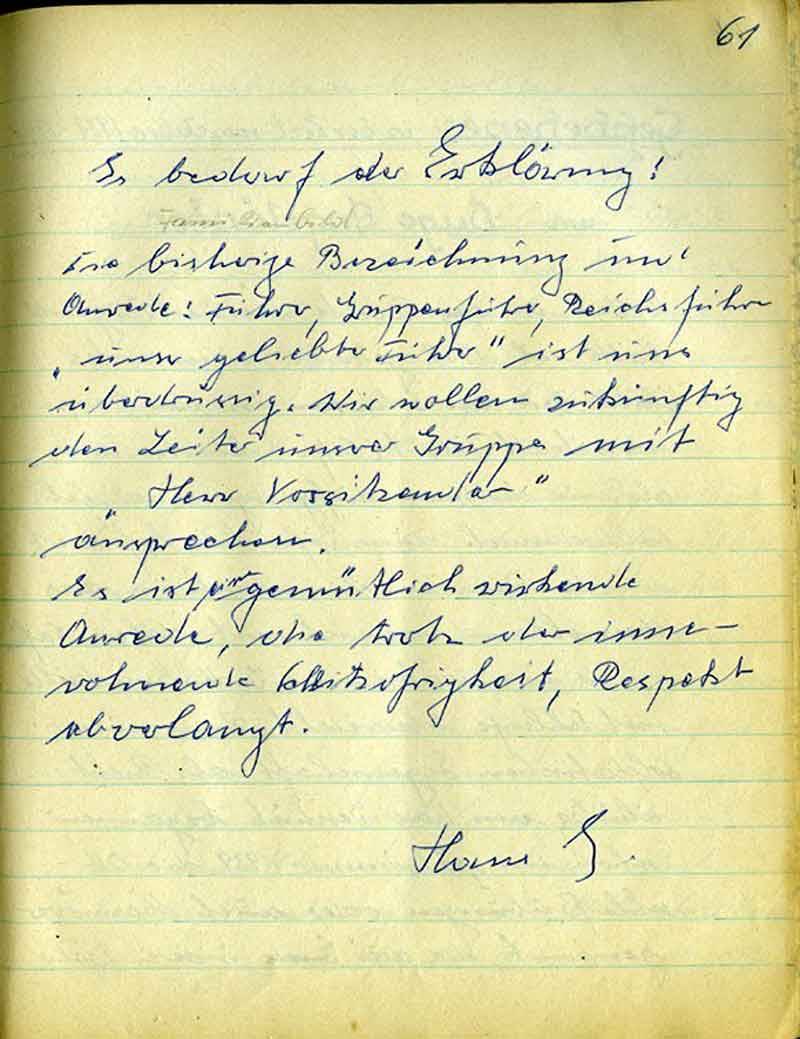 61
Es bedarf der Erklärung!
Familienbild
Die bisherige Bezeichnung und
Anrede: Führer, Gruppenführer, Reichsführer
„unser geliebter Führer" ist uns
überdrüssig. Wir wollen zukünftig
den Leiter unserer Gruppe mit
„Herr Vorsitzender"
ansprechen.
Es ist eine gemütlich wirkende
Anrede, die trotz der inne-
wohnende, Respekt
abverlangt.
Hans G.